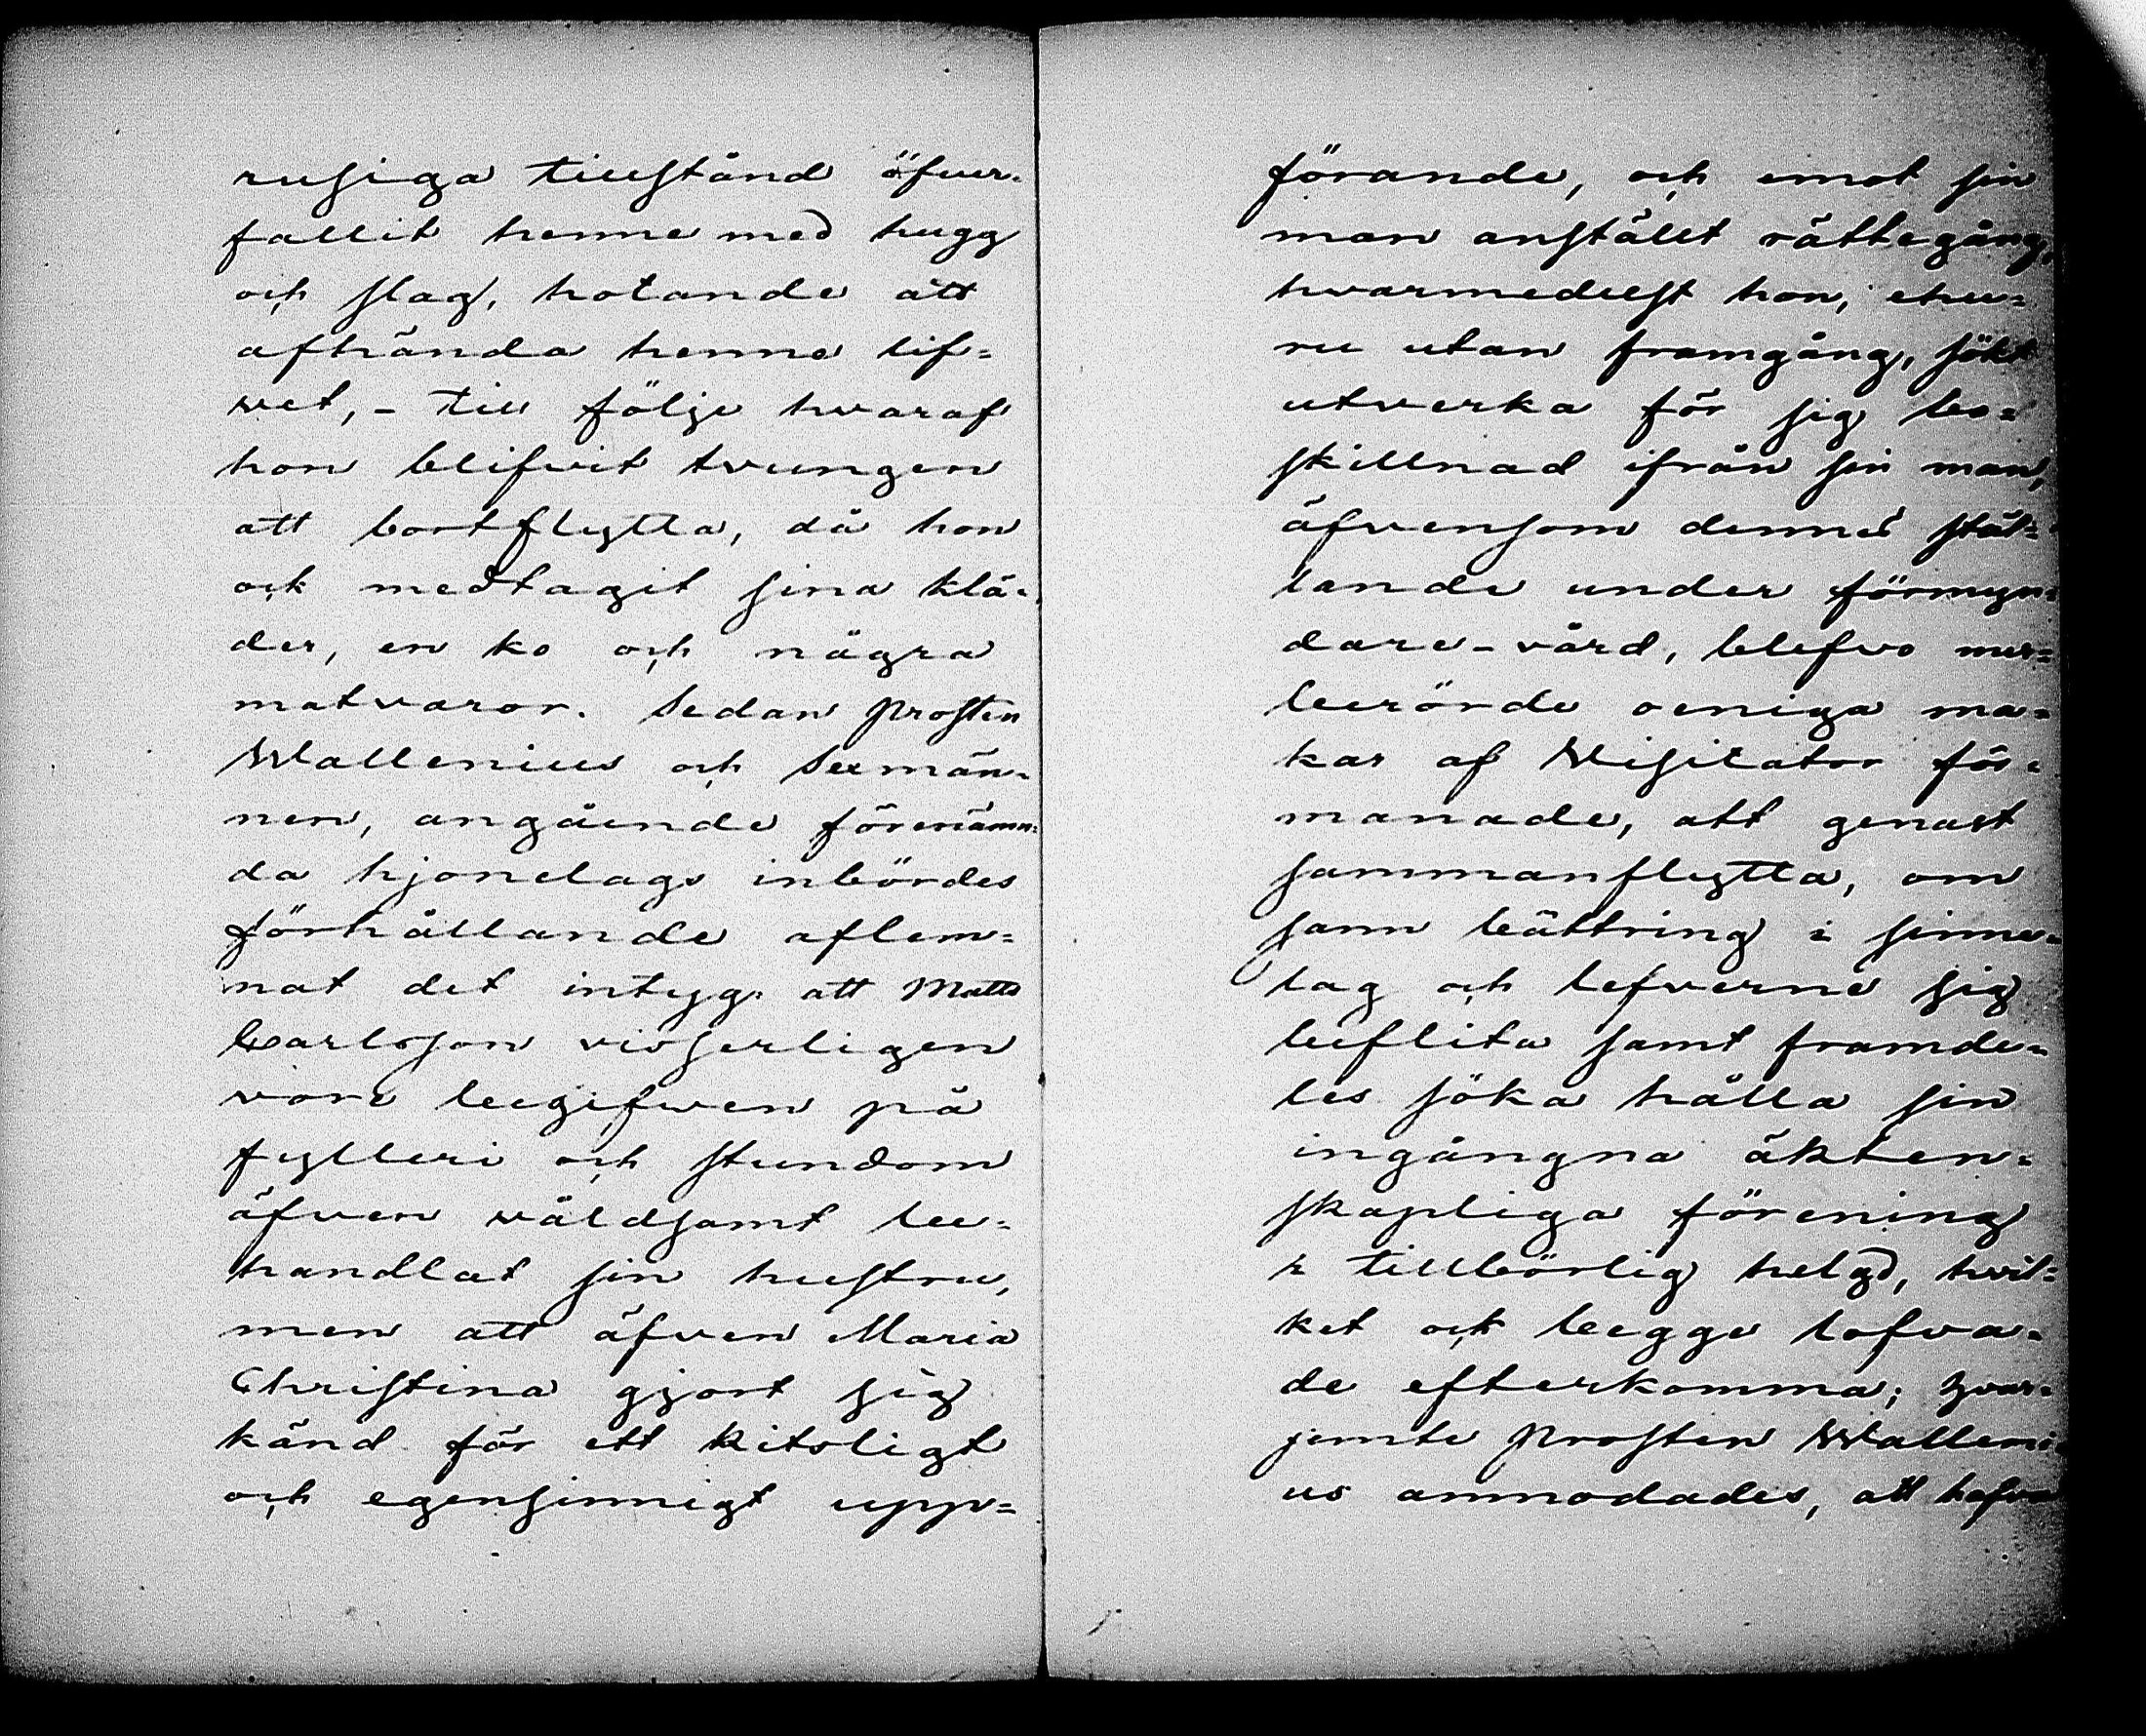 rusiga tillstånd öfver-
fallit henne med hugg
och slag, hotande att
afhända henne lif=
wet, - till följe hvaraf
hon blifvit tvungen
att bortflytta, då hon
ock medtagit sina klä-
der, en ko och några
matvaror. Sedan Prosten
Wallenius och Sexmän-
nen, angående förenämn=
da hjonelags inbördes
förhållande aflem=
nat det intyg, att Matts
Carlsson visserligen
vore begifven på
fylleri och stundom
äfven våldsamt be=
handlat sin hustru,
men att äfven Maria
Christina gjort sig
känd för ett kitsligt
och egensinnigt upp=
förande, och emot sin
man anstält rättegång,
hvarmedelst hon, ehu=
ru utan framgång, sökt
utverka för sig bo=
skillnad ifrån sin man,
äfvensom dennes stäl=
lande under förmyn=
dare-vård, blefvo mer=
berörde oeniga ma=
kar af Visitator för=
manade, att genast
sammanflytta, om
sann bättring i sinne=
lag och lefverne sig
beflita samt framde=
les söka hålla sin
ingångna äkten=
skapliga förening
i tillbörlig helgd, hvil=
ket ock begge lofva=
de efterkomma; hvar=
jemte Prosten Walleni=
us anmodades, att hafva